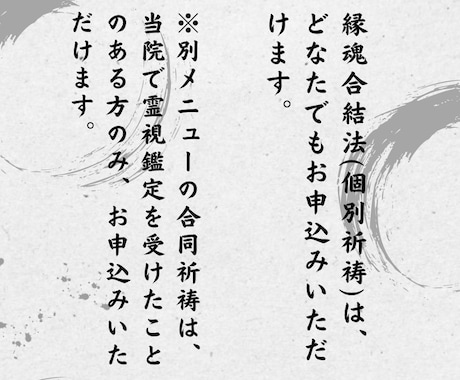 縁魂合結法(個別祈祷)は、
どなたでもお申込みいただ
けます。
※別メニューの合同祈祷は、
当院で霊視鑑定を受けたこと
のある方のみ、お申込みいた
だけます。